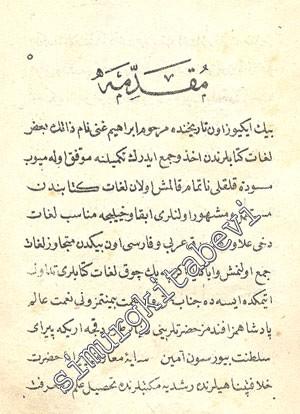 ٥
مقدّمه
بيك ايكيوز اون تاريخنده مرحوم ابراهيم غنى نام ذاتك بعض
لغات كتابلرندن اخذ وجمع ايدرك تكميلنه موفق اوله ميوب
مسوده قلقلى ناتمام قالمش اولان لغات كتابندن
مشهور اولنلرى ابقا وخيليجه مناسب لغات
دخى علاوه عربى و فارسى اون بيكدن متجاوز لغات
جمع اولنمش چوق لغات كتابلرى تداول
ايتمكده ايسه ده جناب نعمت عالم
پادشاهمز افندمز حضرتلرينى اريكه پيراى
سلطنت بيورسون آمين سايهٔ حضرت
خلافتپناهيلرنده رشديه مكتبلرنده تحصيل علم معرفت
simurgkitabevi